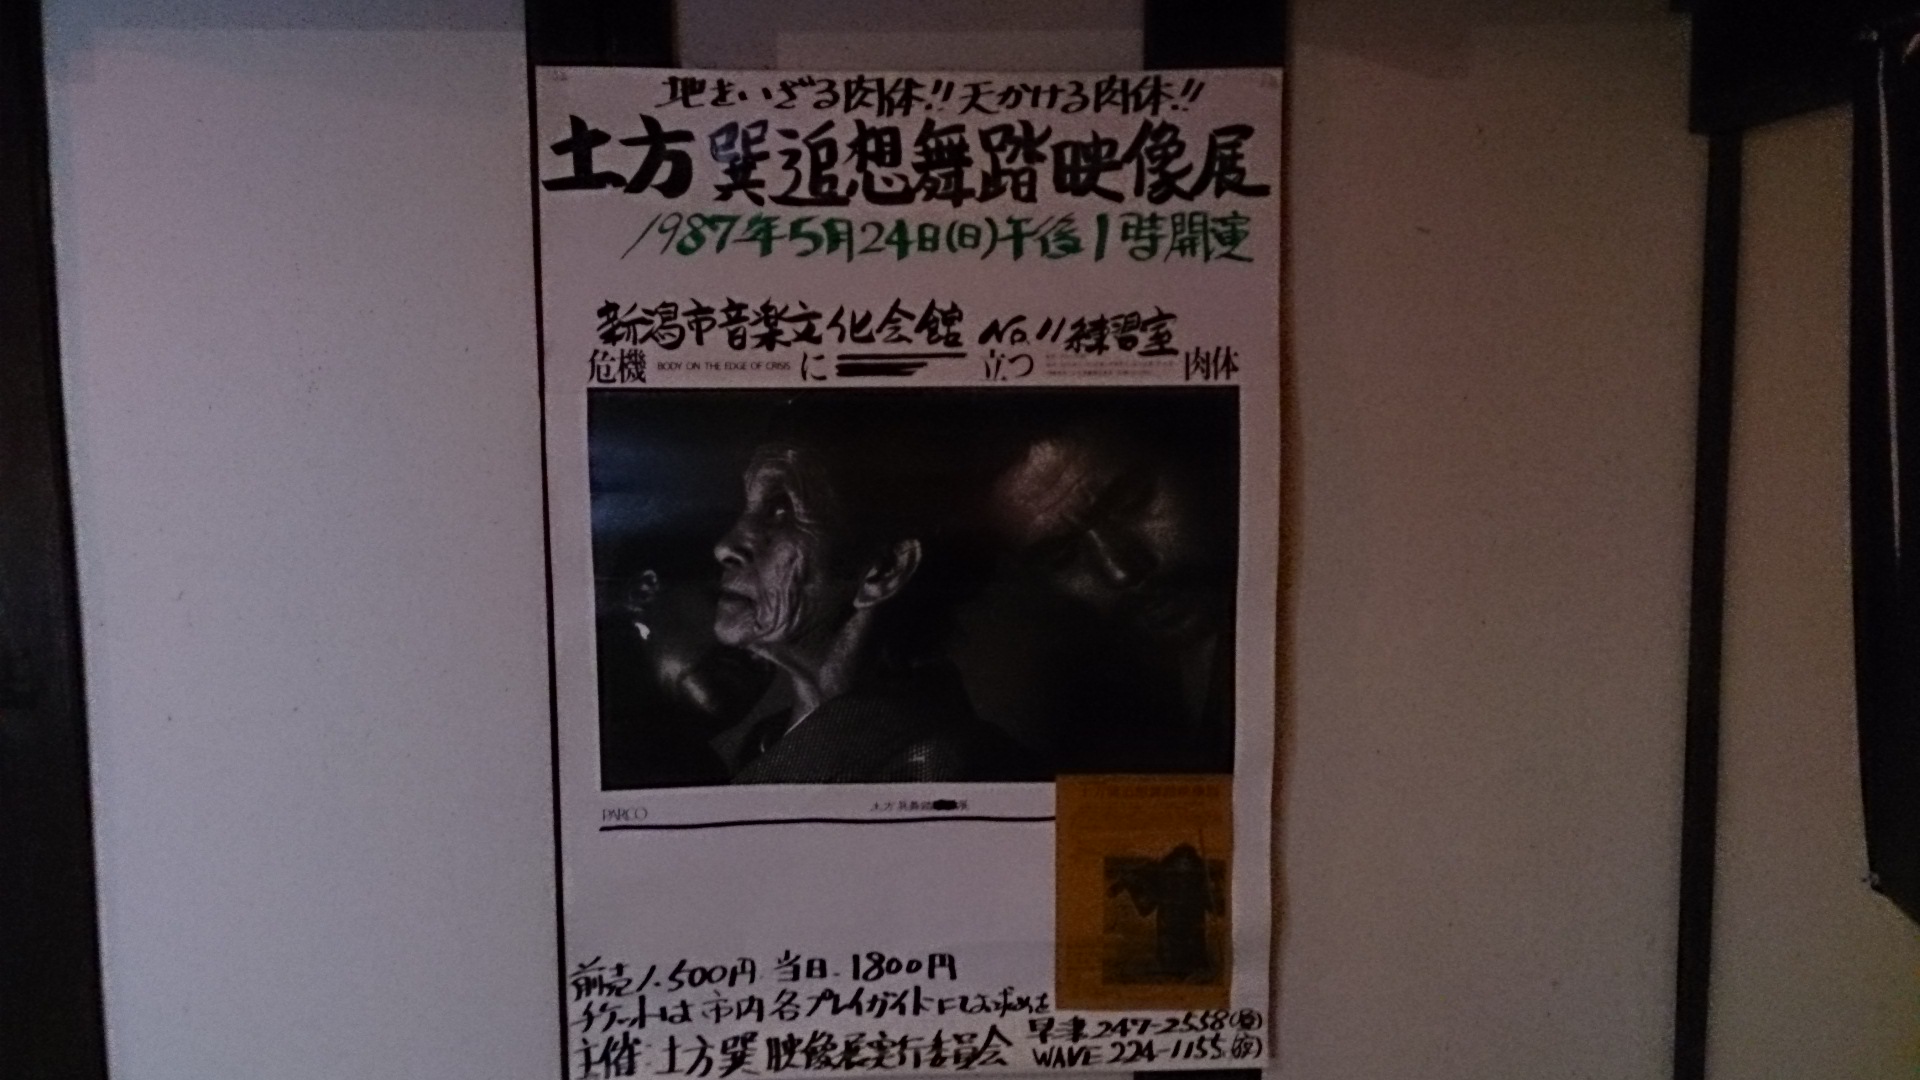 地をいざる肉体!! 天かける肉体!!
土方巽追想舞踏映像展
1987年5月24日(日)午後1時開演
新潟市音楽文化会館 No.11練習室
危機 BODY ON THE EDGE OF CRISIS に 立つ 肉体
PARCO 土方巽舞踏 展
前売1.500円 当日.1800円
チケットは市内各プレイガイドにてお求めを
主催 土方巽映像展実行委員会
早津 247-2558(昼)
WAVE 224-1155(夜)